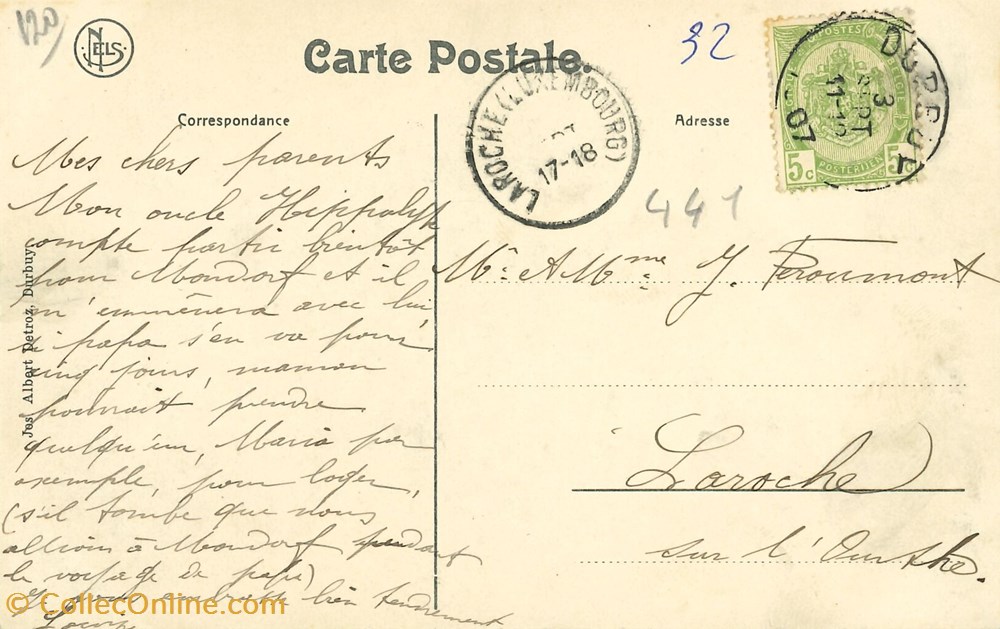 120
NELS
Carte Postale.
32
Correspondance
Adresse
LAROCHE (LUXEMBOURG)
17-18
DURBUY
3
SEPT
11-12
07
POSTES
BELGIQUE
5c
POSTERIJEN
5c
441
Mes chers parents
Mon oncle Hippolyte
compte partir bientôt
pour Mondorf et il
m'emmènera avec lui,
si papa s'en va pour
cinq jours, maman
pourrait prendre
quelqu'un, Maria par
exemple, pour loger,
(s'il tombe que nous
allions à Mondorf pendant
le voyage de papa)
Je vous embrasse bien tendrement
Louise
Mr. et Mme. J. Peroumont
Laroche
sur l'Ourthe.
Jos. Albert Detroz, Durbuy.
© CollecOnline.com